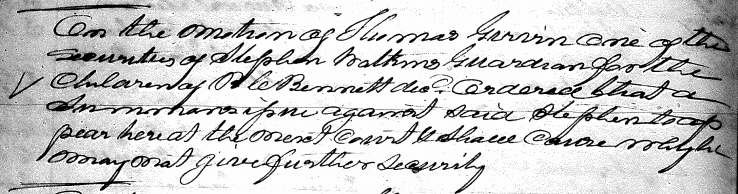 On the motion of Thomas Girvin one of the
securities of Stephen Watkins Guardian for the
Children of Bennett decd. Ordered that a
Summons issue against said Stephen to ap
pear here at the next Court & Shew Cause why he
may not give further Security